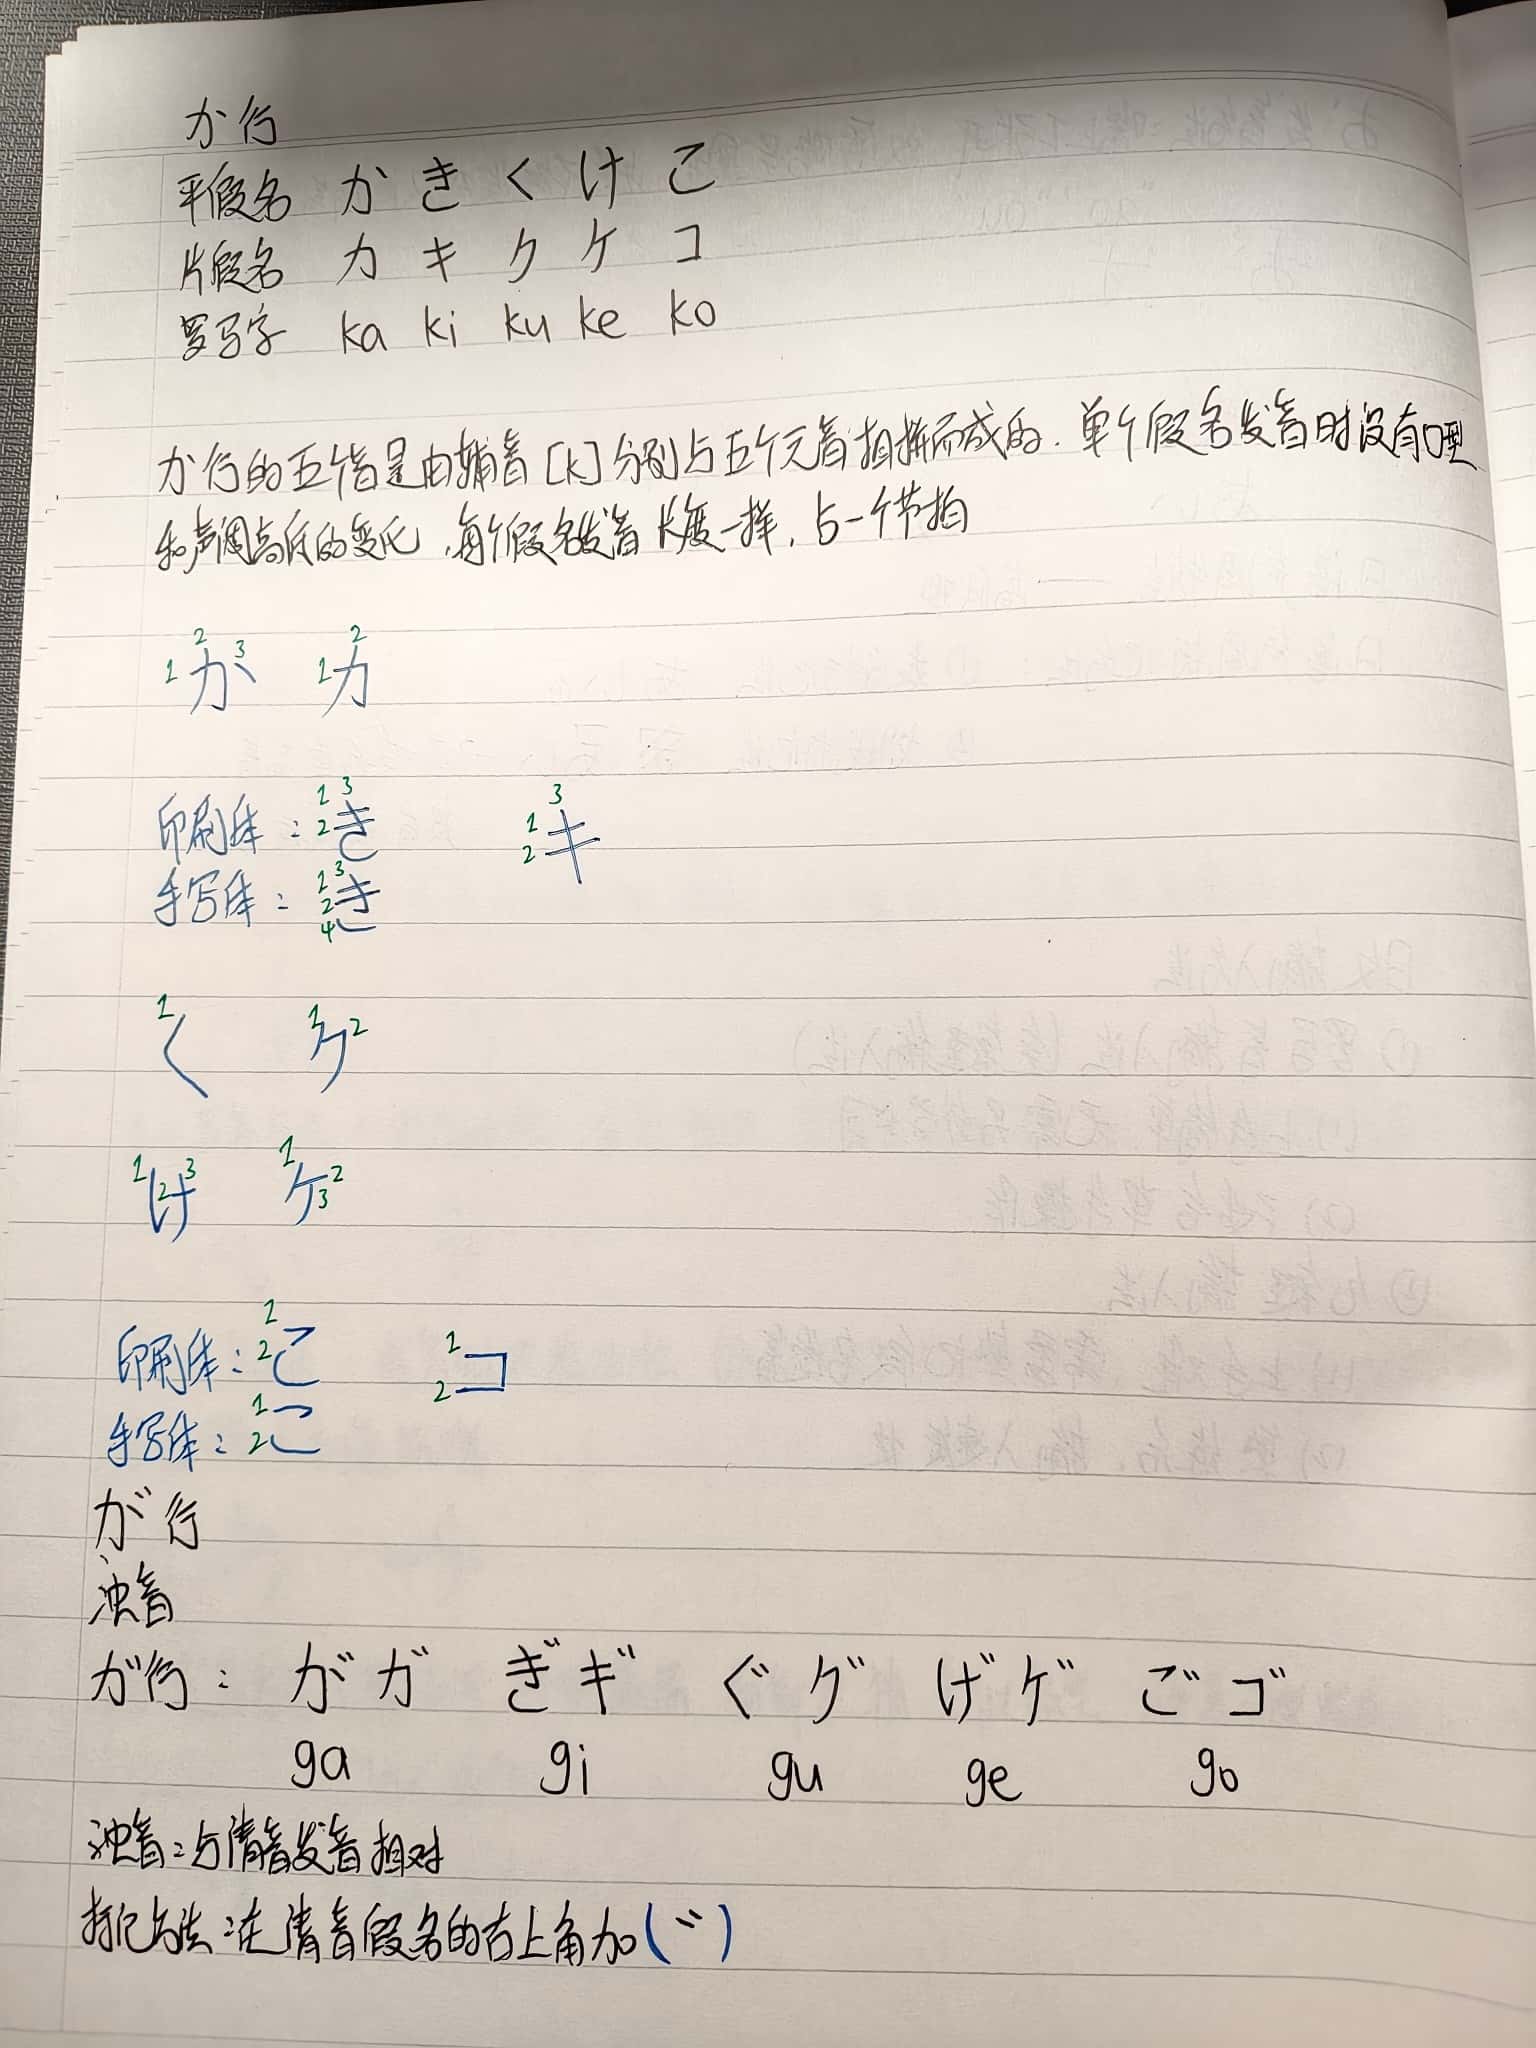 か行
平假名 か き く け こ
片假名 カ キ ク ケ コ
罗马字 ka ki ku ke ko
か行的五个音是由辅音[k]分别与五个元音相拼而成的.单个假名发音时没有口型
和声调高低的变化,每个假名发音长度一样,占一个节拍
2 3 2
1 か 1 カ
1 3 3
印刷体: 2 き 1 2 キ
1 3
手写体: 2 4 き
1 く 1 ク 2
1 2 3 け 1 ケ 2 3
1
印刷体: 2 こ 1 2 コ
手写体: 1 2 こ
が行
浊音
が行: が ガ ぎ ギ ぐ グ げ ゲ ご ゴ
ga gi gu ge go
浊音:与清音发音相对
标记方法:在清音假名的右上角加(〃)